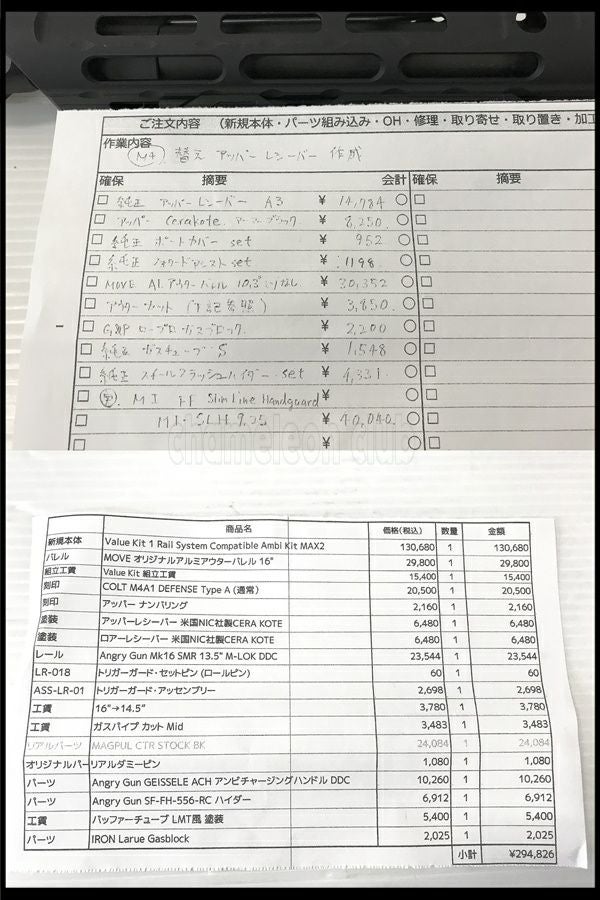 ご注文内容 (新規本体・パーツ組み込み・OH・修理・取り寄せ・取り置き・加工
作業内容
M4 替え アッパーレシーバー 作成
確保 摘要 会計 確保 摘要
純正 アッパーレシーバー A3 ¥ 14,784
アッパー Cerakote. アーマーブラック ¥ 8,250
純正 ポートカバー set ¥ 952
純正 フォワードアシスト set ¥ 1198
MOVE AL アウターバレル 10.3" なし ¥ 30,352
アウター (下記参照) ¥ 3,850
G&P ロープロ ガスブロック ¥ 2,200
純正 ガスチューブ S ¥ 1,548
純正 スチールフラッシュハイダー set ¥ 4,331
M I FF Slim Line Handguard ¥
MI-SLH 9.25 ¥ 40,040
chameleon club
商品名 価格(税込) 数量 金額
新規本体 Value Kit 1 Rail System Compatible Ambi Kit MAX2 130,680 1 130,680
バレル MOVE オリジナルアルミアウターバレル 16" 29,800 1 29,800
組立工賃 Value Kit 組立工賃 15,400 1 15,400
刻印 COLT M4A1 DEFENSE Type A (通常) 20,500 1 20,500
刻印 アッパー ナンバリング 2,160 1 2,160
塗装 アッパーレシーバー 米国NIC社製CERA KOTE 6,480 1 6,480
塗装 ロアーレシーバー 米国NIC社製CERA KOTE 6,480 1 6,480
レール Angry Gun Mk16 SMR 13.5" M-LOK DDC 23,544 1 23,544
LR-018 トリガーガード・セットピン (ロールピン) 60 1 60
ASS-LR-01 トリガーガード・アッセンブリー 2,698 1 2,698
工賃 16"→14.5" 3,780 1 3,780
工賃 ガスパイプ カット Mid 3,483 1 3,483
リアルパーツ MAGPUL CTR STOCK BK 24,084 1 24,084
オリジナルパーツ リアルダミーピン 1,080 1 1,080
パーツ Angry Gun GEISSELE ACH アンビチャージングハンドル DDC 10,260 1 10,260
パーツ Angry Gun SF-FH-556-RC ハイダー 6,912 1 6,912
工賃 バッファーチューブ LMT風 塗装 5,400 1 5,400
パーツ IRON Larue Gasblock 2,025 1 2,025
小計 ¥294,826